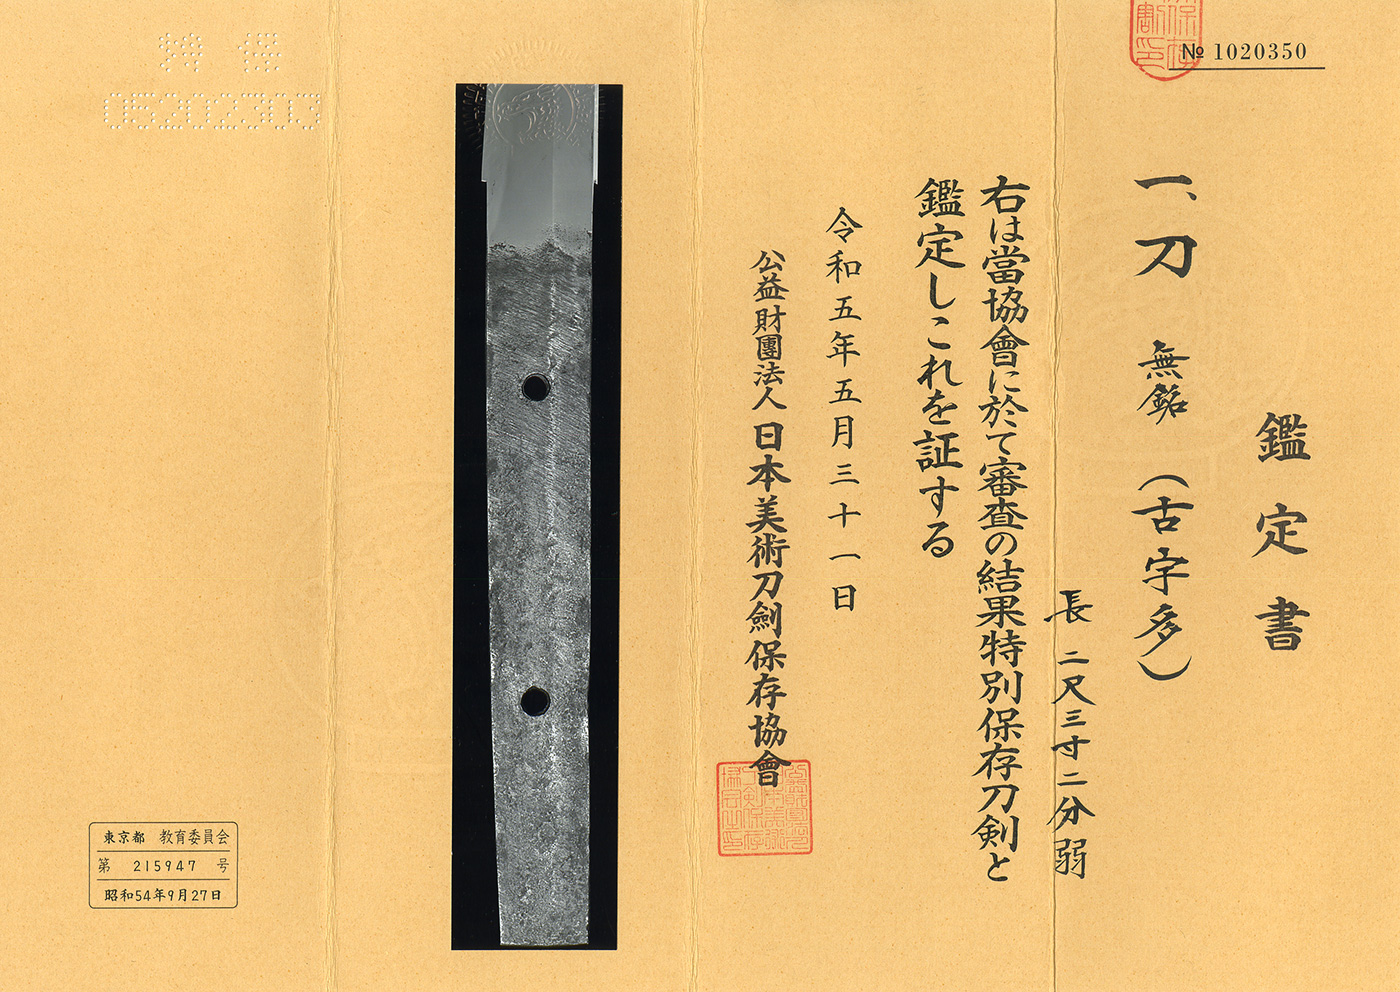 № 1020350
鑑定書
一、刀 無銘 (古宇多)
長 二尺三寸二分弱
右は當協會に於て審査の結果特別保存刀剣と
鑑定しこれを証する
令和五年五月三十一日
公益財團法人 日本美術刀劍保存協會
05202303
東京都 教育委員会
第 215947 号
昭和54年9月27日